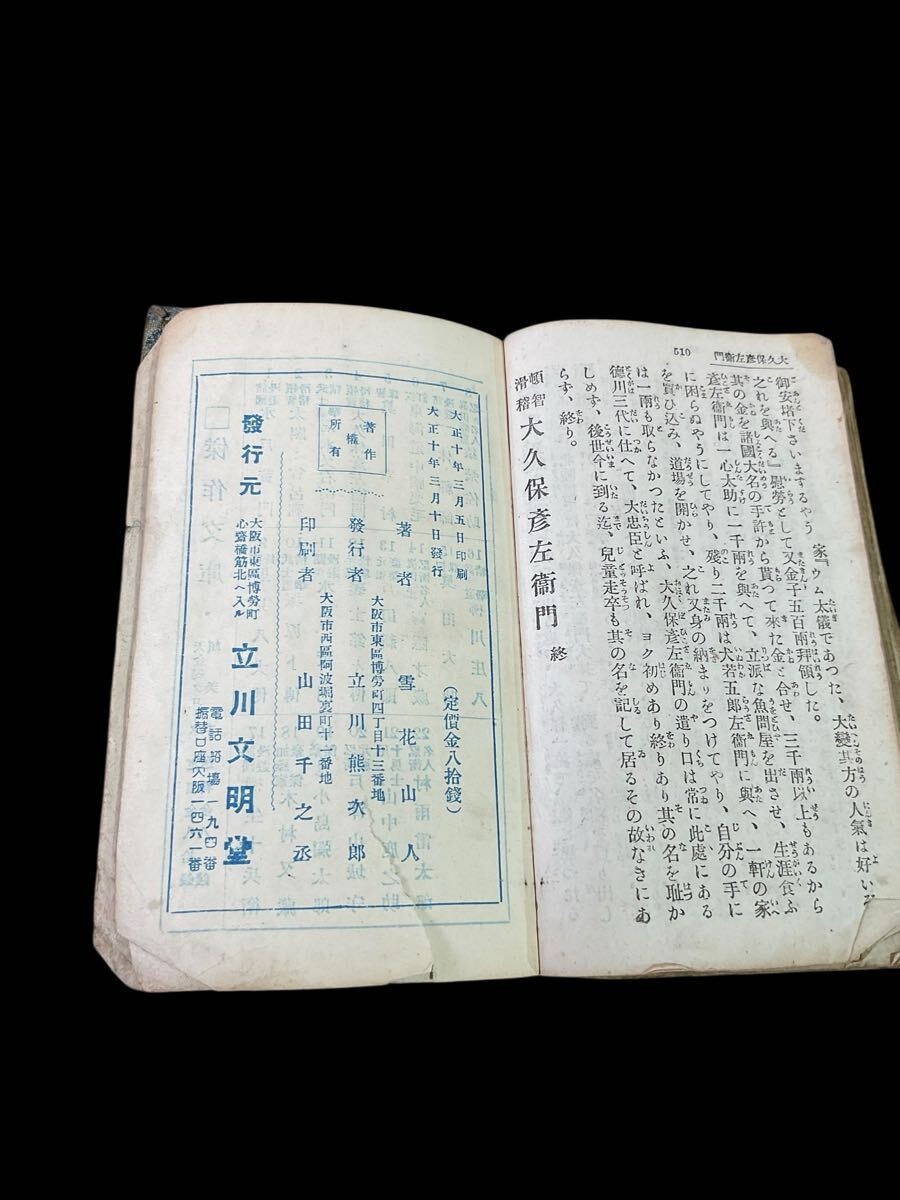 大久保彦左衛門
510
御安堵下さいまするやう 家『ウム太儀であつた、大變其方の人氣は好いぞ
之れを與へる』慰勞として又金子五百兩拜領した。
其の金を諸國大名の手許から貰つて來た金と合せ、三千兩以上もあるから
彦左衛門は一心太助に一千兩を與へて、立派な魚問屋を出させ、生涯食ふ
に困らぬやうにしてやり、殘り二千兩は犬若五郎左衛門に與へ、一軒の家
を買ひ込み、道場を開かせ、之れ又身の納まりをつけてやり、自分の手に
は一兩も取らなかつたといふ、大久保彦左衛門の遣り口は常に此處にある
德川三代に仕へて、大忠臣と呼ばれ、ヨク初めあり終りあり其の名を耻か
しめず、後世今に到る迄、兒童走卒も其の名を記して居るその故なきにあ
らず、終り。
頓智
滑稽
大久保彦左衞門 終
大正十年三月五日印刷
大正十年三月十日發行
(定價金八拾錢)
著作
權
所有
著者 雪花山人
大阪市東區博勞町四丁目十三番地
發行者 立川熊次郎
大阪市西區阿波堀裏町十一番地
印刷者 山田千之丞
發行元
大阪市東區博勞町
心齋橋筋北ヘ入ル
立川文明堂
電話船場一九四番
振替口座大阪一四六一番